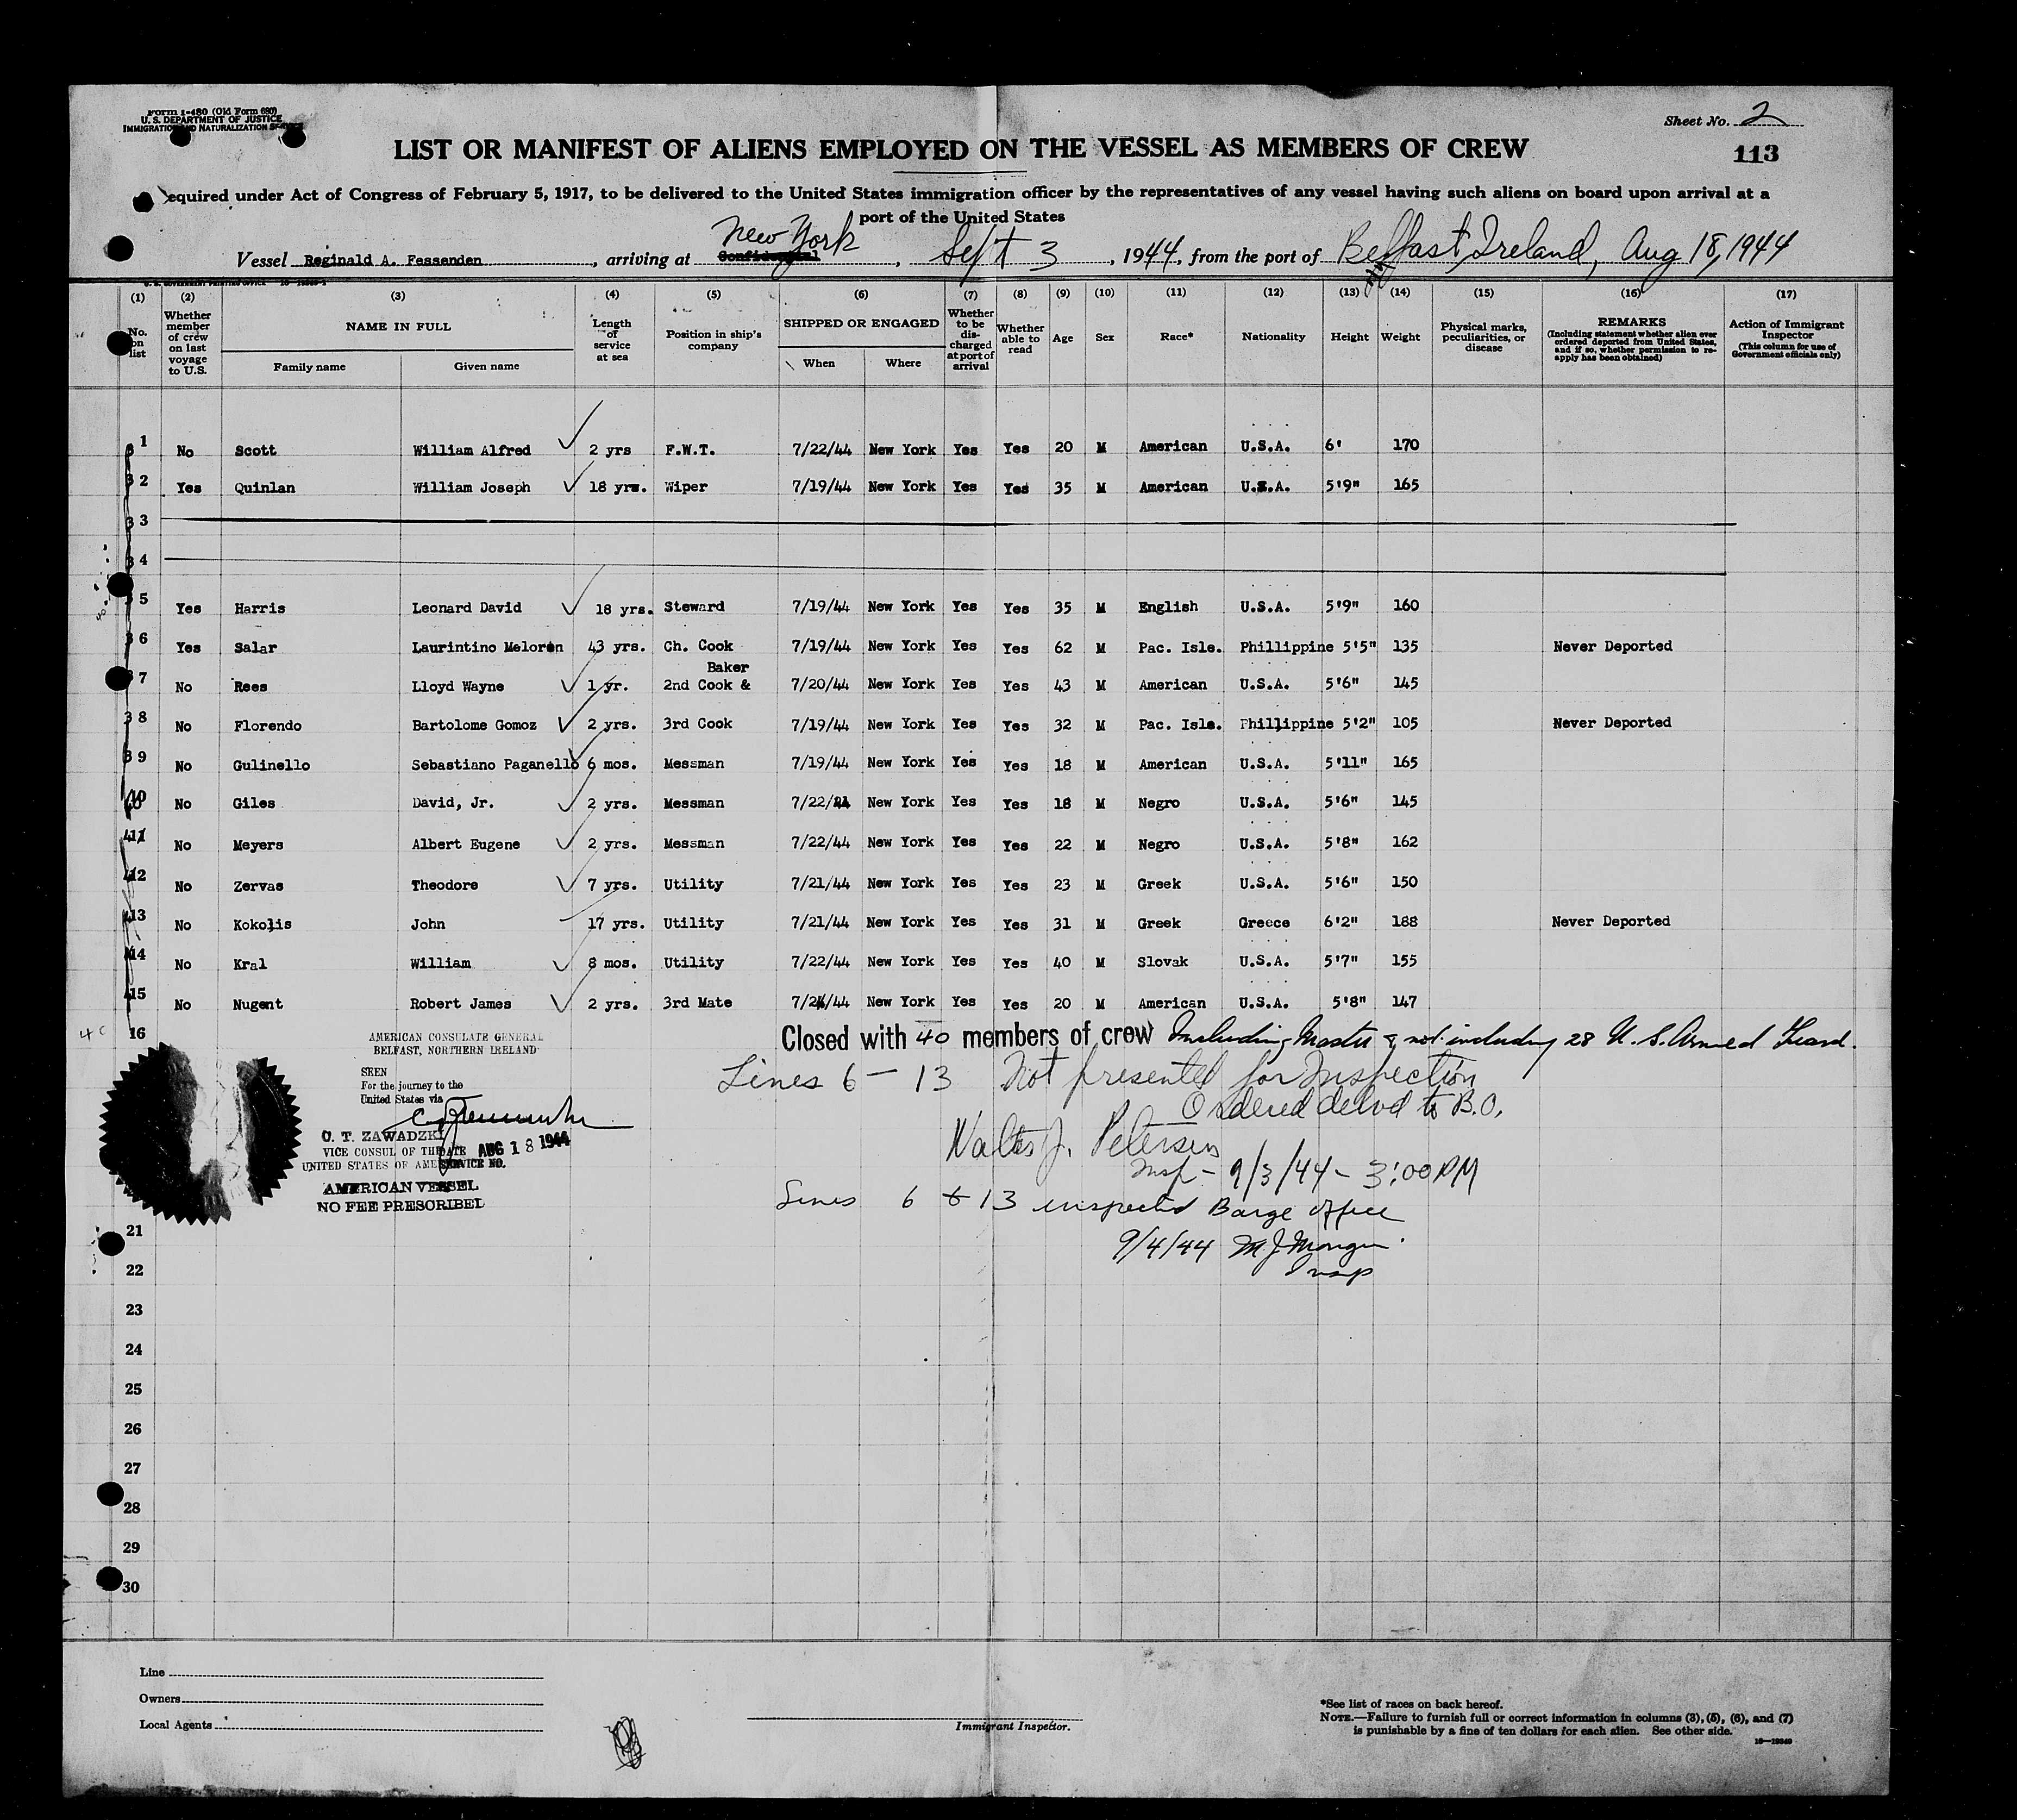 Form I-480 (Old Form 680)
U. S. DEPARTMENT OF JUSTICE
IMMIGRATION AND NATURALIZATION SERVICE
Sheet No. 2
113
LIST OR MANIFEST OF ALIENS EMPLOYED ON THE VESSEL AS MEMBERS OF CREW
equired under Act of Congress of February 5, 1917, to be delivered to the United States immigration officer by the representatives of any vessel having such aliens on board upon arrival at a
port of the United States
New York
Vessel Reginald A. Fessenden, arriving at Confidential, Sept 3, 1944, from the port of Belfast, Ireland, Aug 18, 1944
U. S. GOVERNMENT PRINTING OFFICE
(1) (2) (3) (4) (5) (6) (7) (8) (9) (10) (11) (12) (13) (14) (15) (16) (17)
No. on list
Whether member of crew on last voyage to U.S.
NAME IN FULL
Family name
Given name
Length of service at sea
Position in ship's company
SHIPPED OR ENGAGED
When
Where
Whether to be discharged at port of arrival
Whether able to read
Age
Sex
Race*
Nationality
Height
Weight
Physical marks, peculiarities, or disease
REMARKS
(Including statement whether alien ever ordered deported from United States, and if so, whether permission to reapply has been obtained)
Action of Immigrant Inspector
(This column for use of Government officials only)
1 No Scott William Alfred 2 yrs F.W.T. 7/22/44 New York Yes Yes 20 M American U.S.A. 6' 170
2 Yes Quinlan William Joseph 18 yrs. Wiper 7/19/44 New York Yes Yes 35 M American U.S.A. 5'9" 165
3
4
5 Yes Harris Leonard David 18 yrs. Steward 7/19/44 New York Yes Yes 35 M English U.S.A. 5'9" 160
6 Yes Salar Laurintino Meloren 43 yrs. Ch. Cook 7/19/44 New York Yes Yes 62 M Pac. Isle. Phillippine 5'5" 135 Never Deported
Baker
7 No Rees Lloyd Wayne 1 yr. 2nd Cook & 7/20/44 New York Yes Yes 43 M American U.S.A. 5'6" 145
8 No Florendo Bartolome Gomoz 2 yrs. 3rd Cook 7/19/44 New York Yes Yes 32 M Pac. Isle. Phillippine 5'2" 105 Never Deported
9 No Gulinello Sebastiano Paganello 6 mos. Messman 7/19/44 New York Yes Yes 18 M American U.S.A. 5'11" 165
10 No Giles David, Jr. 2 yrs. Messman 7/22/ New York Yes Yes 18 M Negro U.S.A. 5'6" 145
11 No Meyers Albert Eugene 2 yrs. Messman 7/22/44 New York Yes Yes 22 M Negro U.S.A. 5'8" 162
12 No Zervas Theodore 7 yrs. Utility 7/21/44 New York Yes Yes 23 M Greek U.S.A. 5'6" 150
13 No Kokolis John 17 yrs. Utility 7/21/44 New York Yes Yes 31 M Greek Greece 6'2" 188 Never Deported
14 No Kral William 8 mos. Utility 7/22/44 New York Yes Yes 40 M Slovak U.S.A. 5'7" 155
15 No Nugent Robert James 2 yrs. 3rd Mate New York Yes Yes 20 M American U.S.A. 5'8" 147
16
Closed with 40 members of crew Including Master & not including 28 U. S. Armed Guard.
AMERICAN CONSULATE GENERAL
BELFAST, NORTHERN IRELAND
SEEN
For the journey to the
United States via
C. T. ZAWADZKI
VICE CONSUL OF THE
UNITED STATES OF AMERICA
DATE AUG 18 1944
SERVICE NO.
AMERICAN VESSEL
NO FEE PRESCRIBED
Lines 6 - 13 Not presented for Inspection
Ordered detnd to B.O.
Walter J. Petersen
Insp - 9/3/44 - 3:00 PM
Lines 6 & 13 inspected Barge Office
9/4/44 M J Mongan
Insp
21
22
23
24
25
26
27
28
29
30
Line
Owners
Local Agents
Immigrant Inspector.
*See list of races on back hereof.
NOTE.—Failure to furnish full or correct information in columns (3), (5), (6), and (7)
is punishable by a fine of ten dollars for each alien. See other side.
16—19349